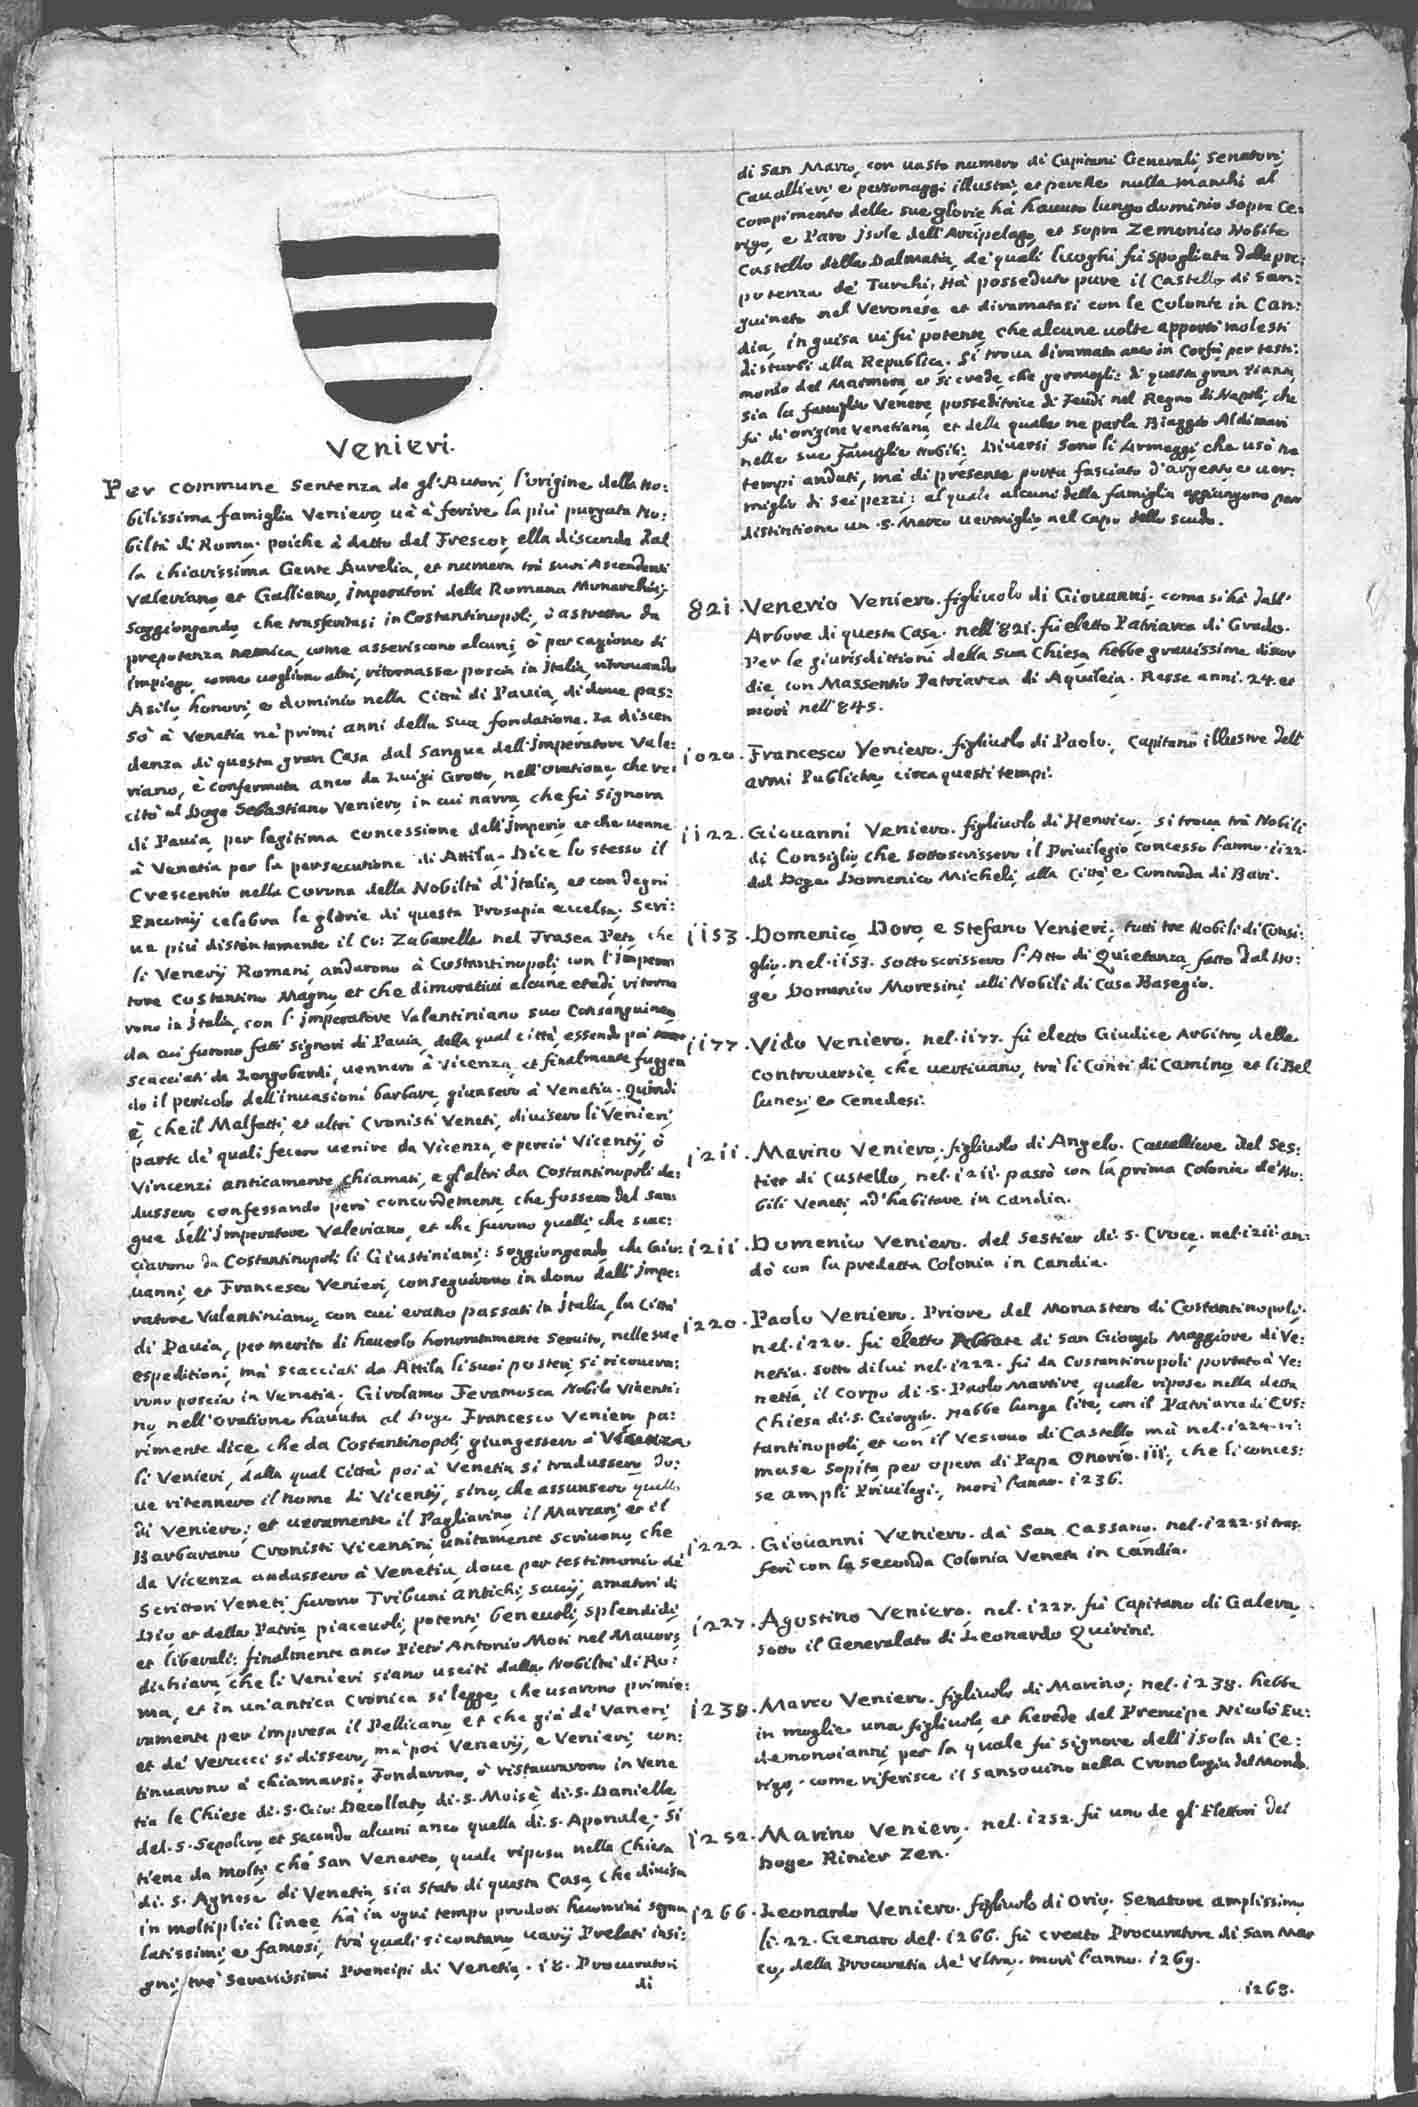 Venieri.
Per commune sentenza de gl'Autori, l'origine della No:
bilissima famiglia Veniero, uà à ferire la più purgata No:
biltà di Roma. poiche à detto del Frescot, ella discende dal
la chiarissima Gente Aurelia, et numera trà suoi Ascendenti
Valeriano et Gallieno, Imperatori della Romana Monarchia;
Soggiongendo, che trasferitasi in Costantinopoli, ò astretta da
prepotenza nemica, come asseriscono alcuni, ò per cagione di
impiego, come uogliono altri, ritornasse poscia in Italia, ritrouando
Asilo, honori, e dominio nella Città di Pauia, di doue pas:
sò à Venetia ne' primi anni della sua fondatione. La discen
denza di questa gran Casa dal sangue dell'Imperatore Vale:
riano, è confermata anco da Luigi Grotto, nell'oratione, che re:
citò al Doge Sebastiano Veniero, in cui narra, che fù Signora
di Pauia, per legitima concessione dell'Imperio et che uenne
à Venetia per la persecutione di Attila. Dice lo stesso il
Crescentio nella Corona della Nobiltà d'Italia, et con degni
Encomij celebra le glorie di questa Prosapia eccelsa. Scri:
ue più distintamente il Co: Zabarella nel Trasea Peto, che
li Venerij Romani, andarono à Costantinopoli con l'Impera
tore Costantino Magno, et che dimorativi alcune etadi, ritorna
rono in Italia, con l'Imperatore Valentiniano suo Consanguineo
da cui furono fatti Signori di Pauia, della qual città, essendo poi
scacciati da Longobardi, uennero à Vicenza, et finalmente fuggen
do il pericolo dell'inuasioni barbare, giunsero à Venetia. Quindi
è, che il Malfatti, et altri Cronisti Veneti, diuisero li Venieri,
parte de' quali fecero uenire da Vicenza, e perciò Vicentij, ò
Vincenzi anticamente chiamati, e gl'altri da Costantinopoli de:
dussero, confessando però concordemente, che fossero del san:
gue dell'Imperatore Valeriano, et che furono quelli che scac:
ciarono da Costantinopoli li Giustiniani: Soggiongendo, che Gio:
uanni, et Francesco Venieri, conseguirono in dono dall'Impe:
ratore Valentiniano, con cui erano passati in Italia, la Città
di Pauia, per merito di hauerlo honoratamente seruito, nelle sue
espeditioni, mà scacciati da Attila li suoi posteri, si ricouera:
rono poscia in Venetia. Girolamo Feramosca Nobile Vicenti:
no, nell'oratione hauuta al Doge Francesco Venier, pa:
rimente dice, che da Costantinopoli giungessero à Vicenza
li Venieri, dalla qual Città poi à Venetia si tradussero do:
ue ritennero il nome di Vicentij, sino, che assunsero quello
di Veniero; et ueramente il Pagliarino, il Marzari, et il
Barbarano Cronisti Vicentini, unitamente scriuono, che
da Vicenza andassero à Venetia, doue per testimonio de'
Scrittori Veneti, furono Tribuni antichi, sauij, amatori di
Dio et della Patria, piaceuoli, potenti, beneuoli, splendidi,
et liberali; finalmente anco Pietr'Antonio Moti nel Mauors,
dichiara, che li Venieri siano usciti dalla Nobiltà di Ro:
ma, et in un'antica Cronica si legge, che usarono primie:
ramente per impresa il Pellicano, et che già de' Vaneri,
et de' Verucci si dissero, mà poi Venerij, e Venieri, con:
tinuarono à chiamarsi. Fondarono, ò ristaurarono in Vene
tia le Chiese di .S. Gio: Decollato, di .S. Moisè, di .S. Danielle
del .S. Sepolcro, et secondo alcuni anco quella di .S. Aponale. Si
tiene da molti, che San Venereo, quale riposa nella Chiesa
di .S. Agnese di Venetia, sia stato di questa Casa, che diuisa
in moltiplici linee, hà in ogni tempo prodotti huomini segna
latissimi, e famosi, trà quali si contano uarij Prelati insi:
gni, trè Serenissimi Prencipi di Venetia. 18. Procuratori
di
di San Marco, con uasto numero di Capitani Generali, Senatori,
Cauallieri, e personaggi illustri, et perche nulla manchi al
compimento delle sue glorie, hà hauuto lungo dominio sopra Ce:
rigo, e Paro Isole dell'Arcipelago, et sopra Zemonico Nobile
Castello della Dalmatia, de' quali luoghi fù spogliata dalla pre:
potenza de' Turchi. Hà posseduto pure il Castello di San:
guineto nel Veronese, et diramatasi con le Colonie in Can:
dia, in guisa ui fù potente, che alcune uolte apportò molesti
disturbi alla Republica. Si troua diramata anco in Corfù per testi:
monio del Marmora, et si crede, che germogli: di questa gran Pianta,
sia la famiglia Venere, posseditrice di Feudi nel Regno di Napoli, che
fù di origine Venetiana, et della quale ne parla Biaggio Aldimari
nelle sue Famiglie Nobili: Diuersi sono li Armeggi che usò ne
tempi andati, mà di presente porta fasciato d'argento, e uer:
miglio di sei pezzi; al quale alcuni della famiglia aggiungono per
distintione un .S. Marco uermiglio nel capo dello scudo.
821. Venerio Veniero. figliuolo di Giouanni, come si hà dall'
Arbore di questa Casa. nell'821. fù eletto Patriarca di Grado.
Per le giurisdittioni della sua Chiesa hebbe grauissime discor
die, con Massentio Patriarca di Aquileia. Resse anni. 24. et
morì nell'845.
1020. Francesco Veniero. figliuolo di Paolo, Capitano illustre dell'
armi Publiche, circa questi tempi.
1122. Giouanni Veniero. figliuolo di Henrico, si troua trà Nobili
di Consiglio, che sottoscrissero il Priuilegio concesso l'anno. 1122.
dal Doge Domenico Micheli, alla Città e Contrada di Bari.
1153. Domenico, Doro, e Stefano Venieri, tutti tre Nobili di Consi:
glio. nel. 1153. sottoscrissero l'Atto di Quietanza, fatto dal Do:
ge Domenico Moresini, alli Nobili di Casa Basegio.
1177. Vido Veniero, nel. 1177. fù eletto Giudice Arbitro, delle
controuersie, che uertiuano, trà li Conti di Camino, et li Bel
lunesi, e Cenedesi.
1211. Marino Veniero, figliuolo di Angelo, Caualliere del Ses:
tier di Castello, nel. 1211. passò con la prima Colonia de' No:
bili Veneti ad'habitare in Candia.
1211. Domenico Veniero. del Sestier di .S. Croce. nel. 1211. an:
dò con la predetta Colonia in Candia.
1220. Paolo Veniero. Priore del Monastero di Costantinopoli.
nel. 1220. fù eletto Abbate di San Giorgio Maggiore di Ve:
netia. sotto di lui nel. 1222. fù da Costantinopoli portato à Ve:
netia, il corpo di .S. Paolo Martire, quale riposa nella detta
Chiesa di .S. Giorgio. Hebbe lunga lite, con il Patriarca di Cos:
tantinopoli, et con il Vescouo di Castello, mà nel. 1224. ri:
mase sopita, per opera di Papa Onorio. III, che li conces:
se ampli Priuilegi, morì l'anno. 1236.
1222. Giouanni Veniero. da San Cassano. nel. 1222. si tras
ferì con la seconda Colonia Veneta in Candia.
1227. Agostino Veniero, nel. 1227. fù Capitano di Galera,
sotto il Generalato di Leonardo Quirini.
1238. Marco Veniero. figliuolo di Marino, nel. 1238. hebbe
in moglie una figliuola, et herede del Prencipe Nicolò Eu:
demonoianni, per la quale fù Signore dell'Isola di Ce:
rigo. come riferisce il Sansouino nella Cronologia del Mondo.
1252. Marino Veniero. nel. 1252. fù uno de gl'Elettori del
Doge Rinier Zen.
1266. Leonardo Veniero. figliuolo di Orio, Senatore amplissimo
li. 22. Genaro del. 1266. fù creato Procuratore di San Mar
co, della Procuratia de' Vltra. morì l'anno. 1269.
1268.